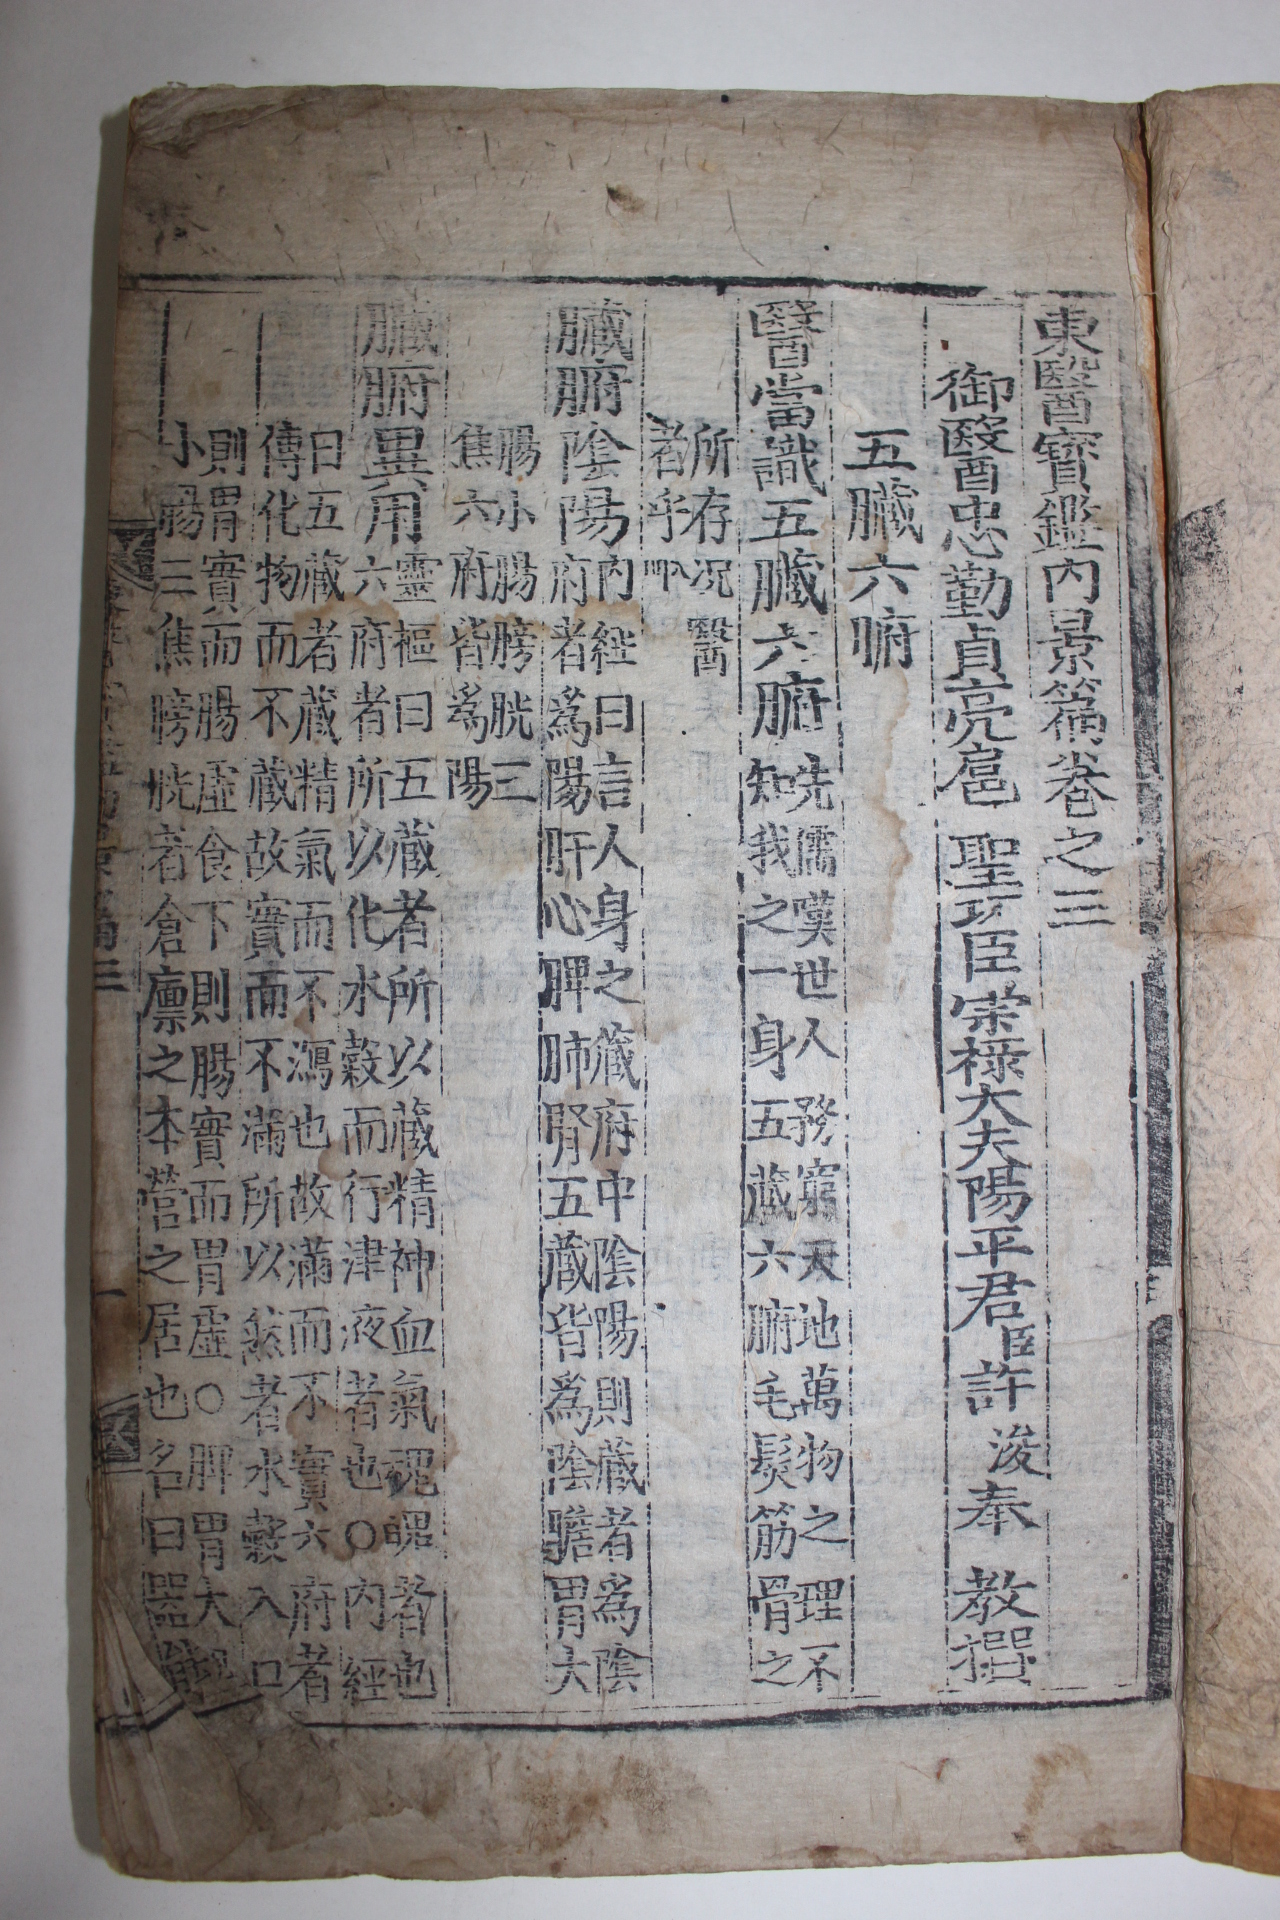 東醫寶鑑內景篇卷之三
御醫忠勤貞亮扈聖功臣崇祿大夫陽平君臣許浚奉敎撰
五臟六腑
醫當識五臟六腑先儒嘆世人務窮天地萬物之理不
知我之一身五藏六腑毛髮筋骨之
所存況醫
者乎入門
臟腑陰陽內經曰言人身之藏府中陰陽則藏者爲陰
府者爲陽肝心脾肺腎五藏皆爲陰膽胃大
腸小腸膀胱三
焦六府皆爲陽
臟腑異用靈樞曰五藏者所以藏精神血氣魂魄者也
六府者所以化水穀而行津液者也○內經
曰五藏者藏精氣而不瀉也故滿而不實六府者
傳化物而不藏故實而不滿所以然者水穀入口
則胃實而腸虛食下則腸實而胃虛○脾胃大腸
小腸三焦膀胱者倉廩之本營之居也名曰器